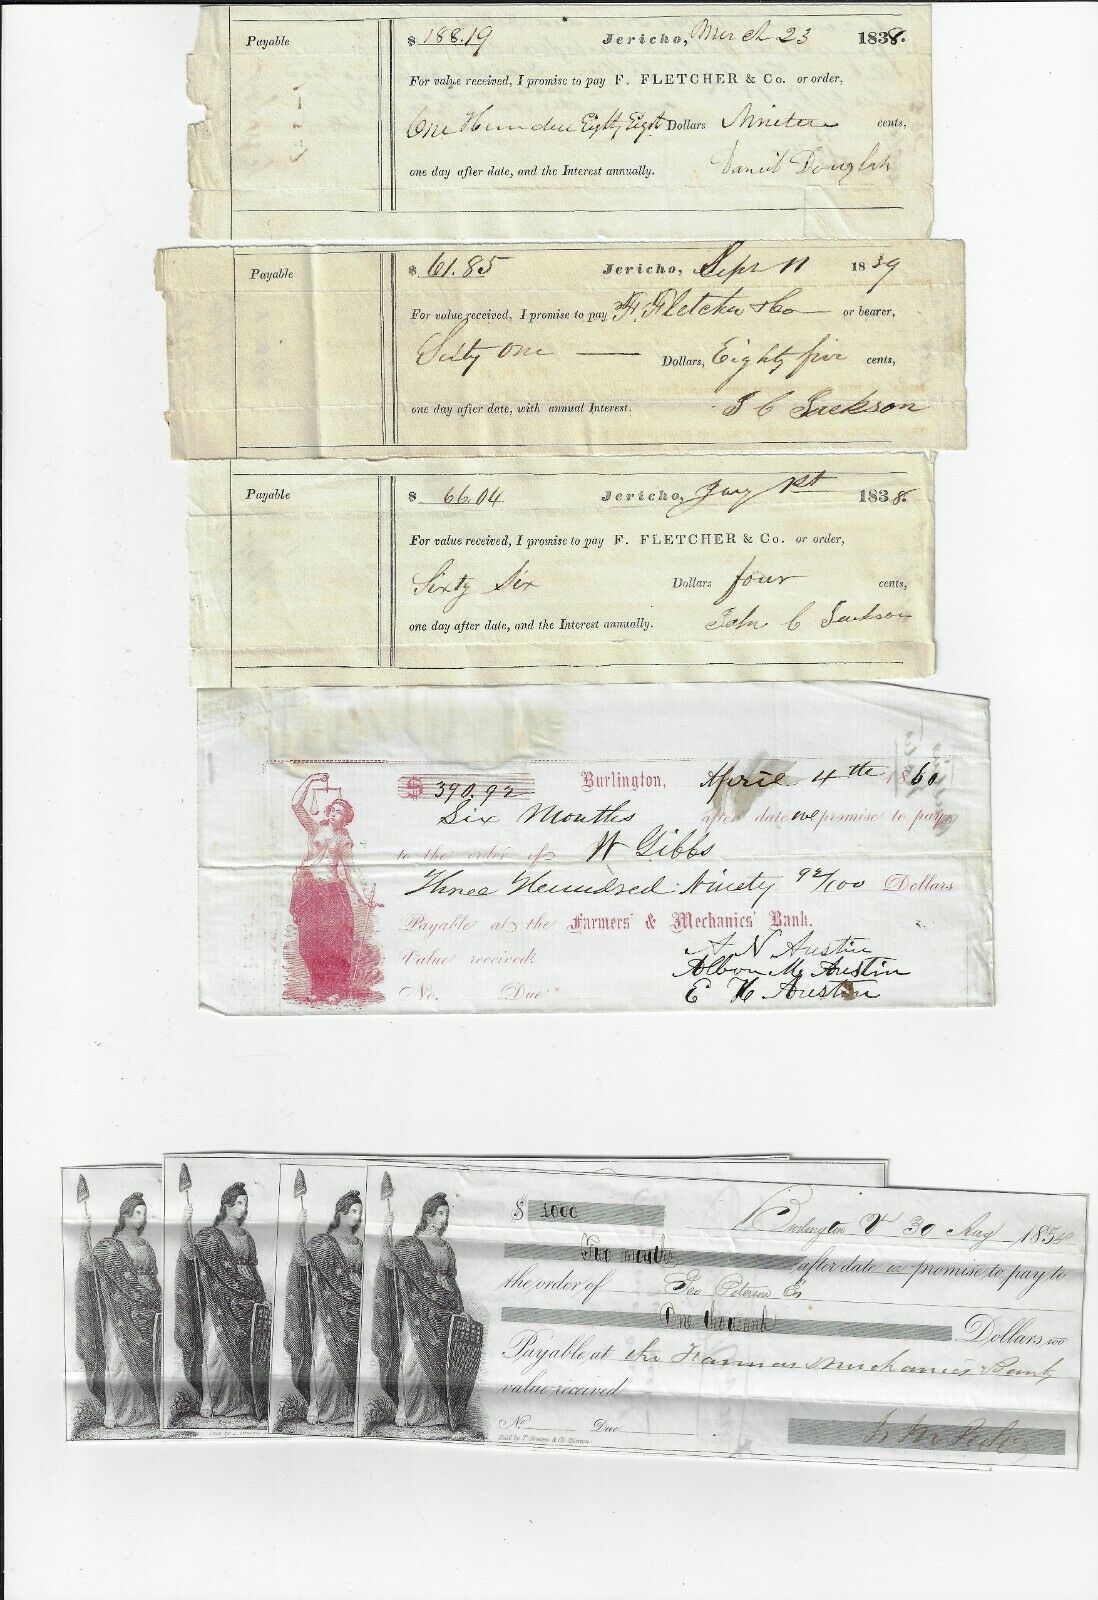 Payable
$ 188.19 Jericho, March 23 1838.
For value received, I promise to pay F. FLETCHER & Co. or order,
One Hundred Eighty Eight Dollars Nineteen cents,
one day after date, and the Interest annually.
Daniel Douglass
Payable
$ 61.85 Jericho, Sept 11 1839
For value received, I promise to pay F. Fletcher & Co or bearer,
Sixty One Dollars, Eighty five cents,
one day after date, with annual Interest.
J C Jackson
Payable
$ 66.04 Jericho, Jay 1st 1838.
For value received, I promise to pay F. FLETCHER & Co. or order,
Sixty Six Dollars four cents,
one day after date, and the Interest annually.
John C Jackson
$ 390.92 Burlington, April 4th 1860
Six Months after date we promise to pay
to the order of W Gibbs
Three Hundred Ninety 92/100 Dollars
Payable at the Farmers' & Mechanics' Bank.
Value received.
A N Austin
Albon M Austin
E H Austin
No. Due
$ 1000 Burlington Vt 30 Aug 1854
Two months after date we promise to pay to
the order of Geo Peterson
One thousand Dollars
Payable at the Farmers & Mechanics Bank
value received
No Due
Sold by T. Groom & Co. Boston